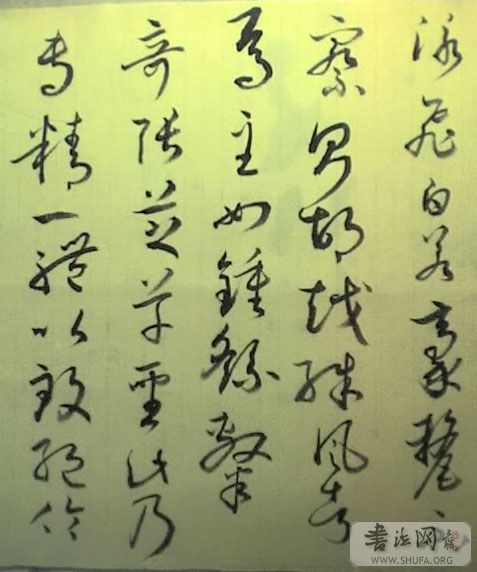 泳飛白若豪釐
察則胡越殊風者
焉至如鍾繇隸
奇張芝草聖此乃
專精一體以致絕倫
書法网
WWW.SHUFA.ORG